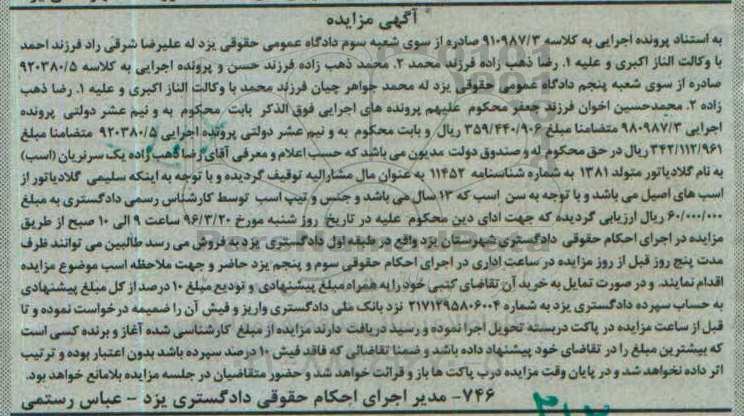 آگهی مزایده
به استناد پرونده اجرایی به کلاسه ۹۱۰۹۸۷/۳ صادره از سوی شعبه سوم دادگاه عمومی حقوقی یزد له علیرضا شرقی راد فرزند احمد
با وکالت الناز اکبری و علیه ۱. رضا ذهب زاده فرزند محمد ۲. محمد ذهب زاده فرزند حسن و پرونده اجرایی به کلاسه ۹۲۰۳۸۰/۵
صادره از سوی شعبه پنجم دادگاه عمومی حقوقی یزد له محمد جواهر چیان فرزند محمد با وکالت الناز اکبری و علیه ۱. رضا ذهب
زاده ۲. محمدحسین اخوان فرزند جعفر محکوم علیهم پرونده های اجرایی فوق الذکر بابت محکوم به و نیم عشر دولتی پرونده
اجرایی ۹۸۰۹۸۷/۳ متضامنا مبلغ ۳۵۹/۴۴۰/۹۰۶ ریال و بابت محکوم به و نیم عشر دولتی پرونده اجرایی ۹۲۰۳۸۰/۵ متضامنا مبلغ
۳۴۲/۱۱۲/۹۶۱ ریال در حق محکوم له و صندوق دولت مدیون می باشد که حسب اعلام و معرفی آقای رضا ذهب زاده یک سر نریان (اسب)
به نام گلادیاتور متولد ۱۳۸۱ به شماره شناسنامه ۱۱۴۵۲ به عنوان مال مشارالیه توقیف گردیده و با توجه به اینکه سلیمی گلادیاتور از
اسب های اصیل می باشد و با توجه به سن اسب که ۱۳ سال می باشد و جنس و تیپ اسب توسط کارشناس رسمی دادگستری به مبلغ
۶۰/۰۰۰/۰۰۰ ریال ارزیابی گردیده که جهت ادای دین محکوم علیه در تاریخ روز شنبه مورخ ۹۶/۳/۲۰ ساعت ۹ الی ۱۰ صبح از طریق
مزایده در اجرای احکام حقوقی دادگستری شهرستان یزد واقع در طبقه اول دادگستری یزد به فروش می رسد طالبین می توانند ظرف
مدت پنج روز قبل از روز مزایده در ساعت اداری در اجرای احکام حقوقی سوم و پنجم یزد حاضر و جهت ملاحظه اسب موضوع مزایده
اقدام نمایند. و در صورت تمایل به خرید آن تقاضای کتبی خود را به همراه مبلغ پیشنهادی و تودیع مبلغ ۱۰ درصد از کل مبلغ پیشنهادی
به حساب سپرده دادگستری یزد به شماره ۲۱۷۱۲۹۵۸۰۶۰۰۴ نزد بانک ملی دادگستری واریز و فیش آن را ضمیمه درخواست نموده و تا
قبل از ساعت مزایده در پاکت دربسته تحویل اجرا نموده و رسید دریافت دارند مزایده از مبلغ کارشناسی شده آغاز و برنده کسی است
که بیشترین مبلغ را در تقاضای خود پیشنهاد داده باشد و ضمنا تقاضائی که فاقد فیش ۱۰ درصد سپرده باشد بدون اعتبار بوده و ترتیب
اثر داده نخواهد شد و در پایان وقت مزایده درب پاکت ها باز و قرائت خواهد شد و حضور متقاضیان در جلسه مزایده بلامانع خواهد بود.
۷۴۶- مدیر اجرای احکام حقوقی دادگستری یزد - عباس رستمی